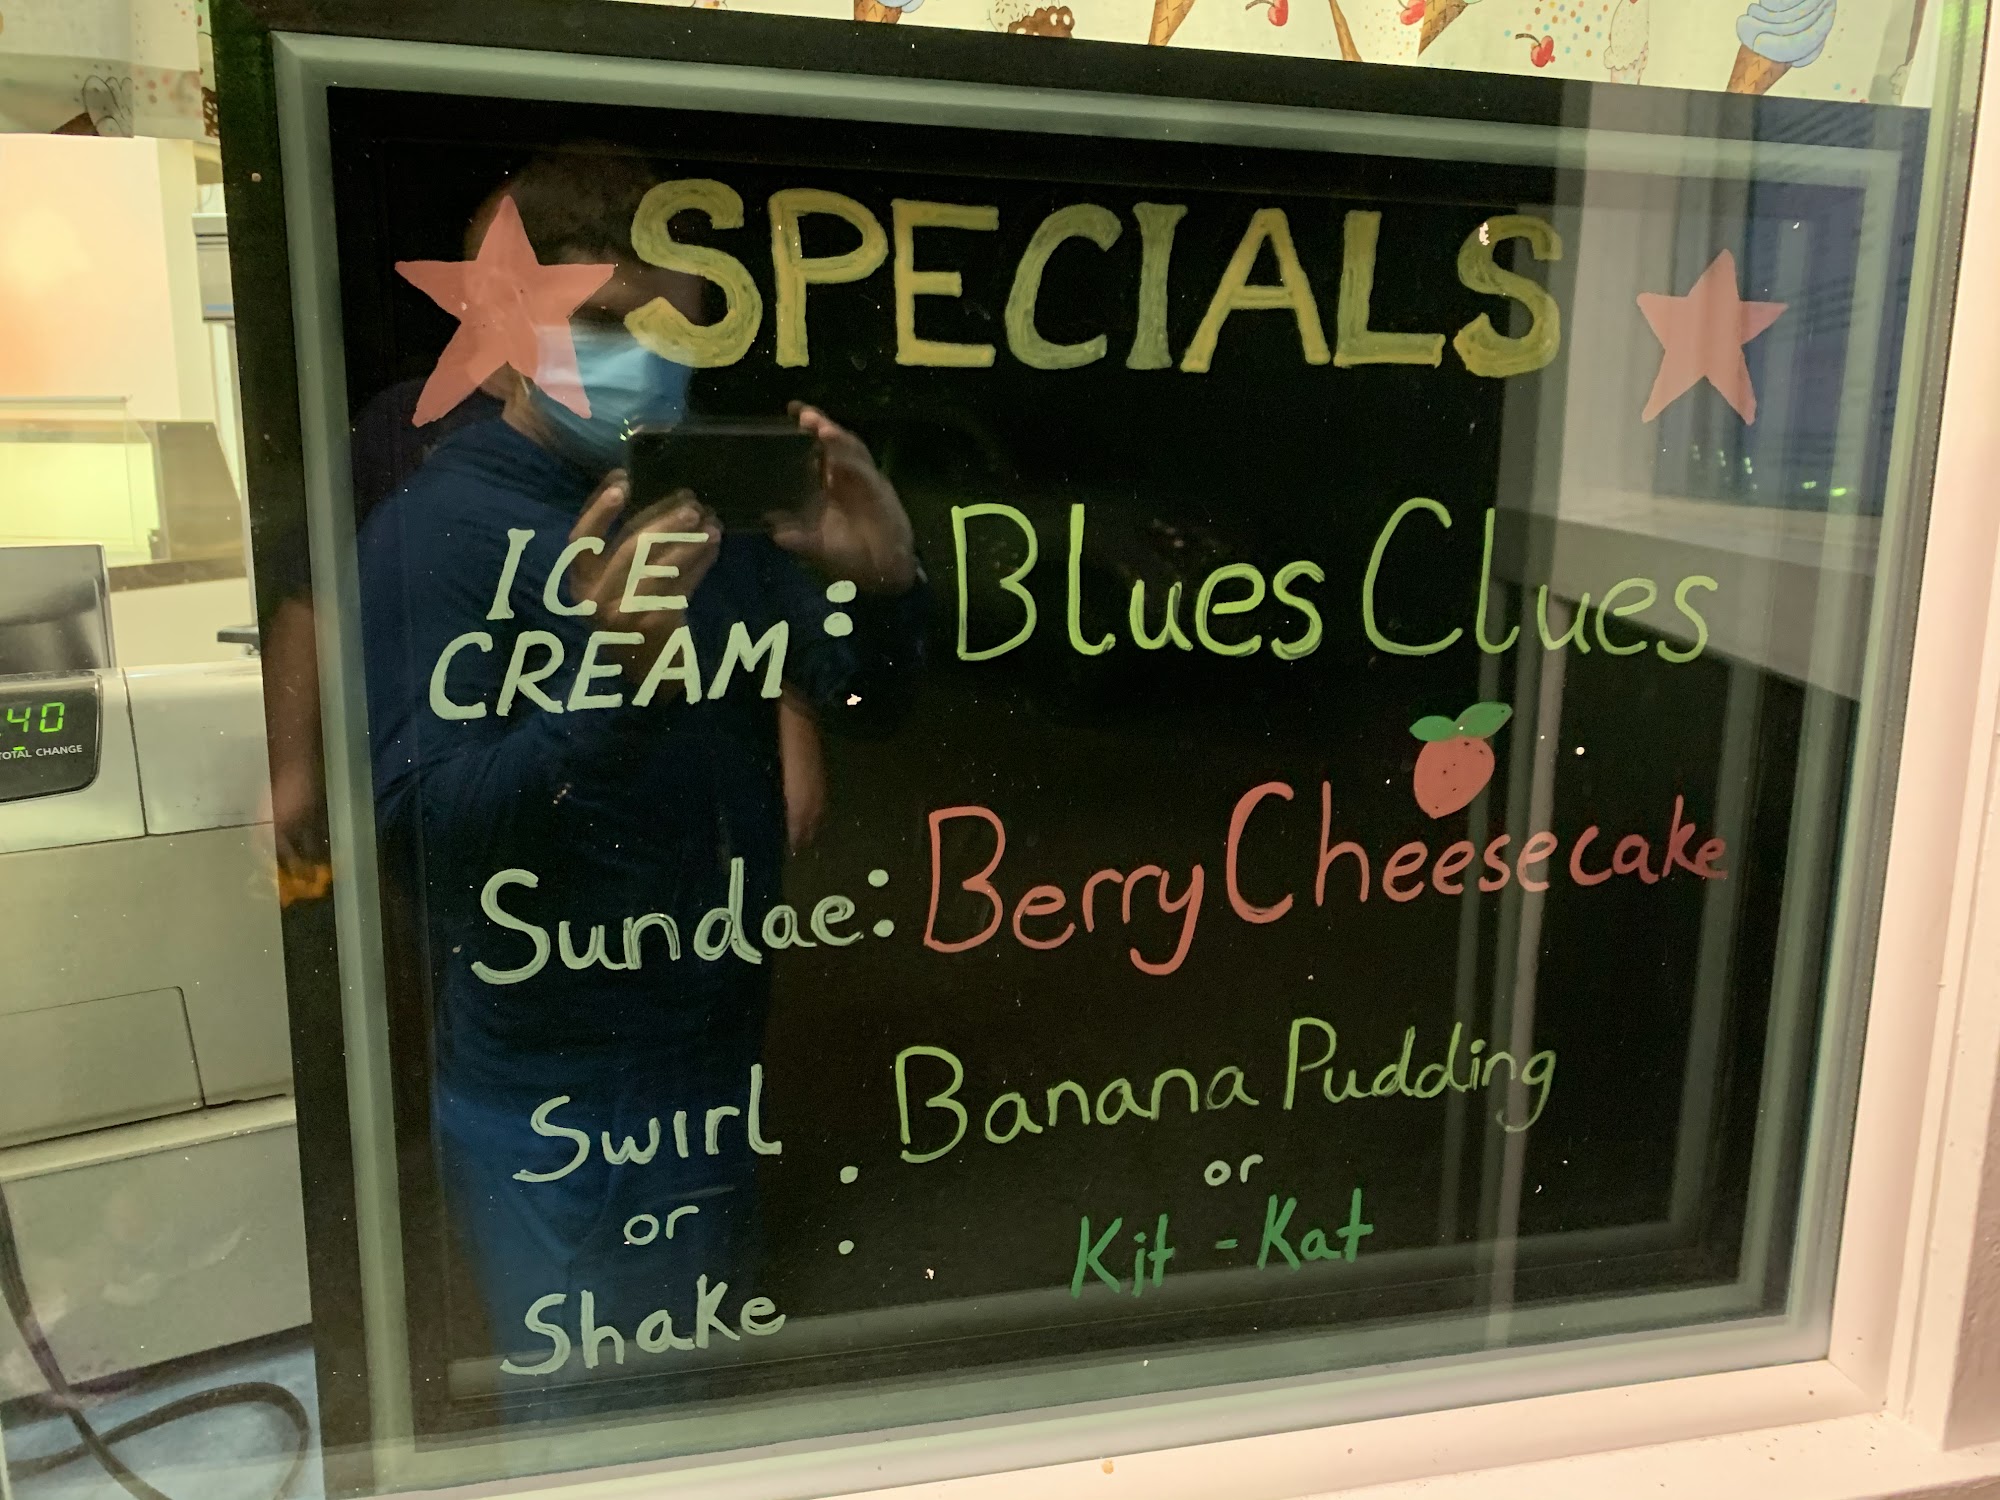 SPECIALS
ICE CREAM : Blues Clues
Sundae: Berry Cheesecake
Swirl or Shake : Banana Pudding or Kit-Kat
40
TOTAL CHANGE